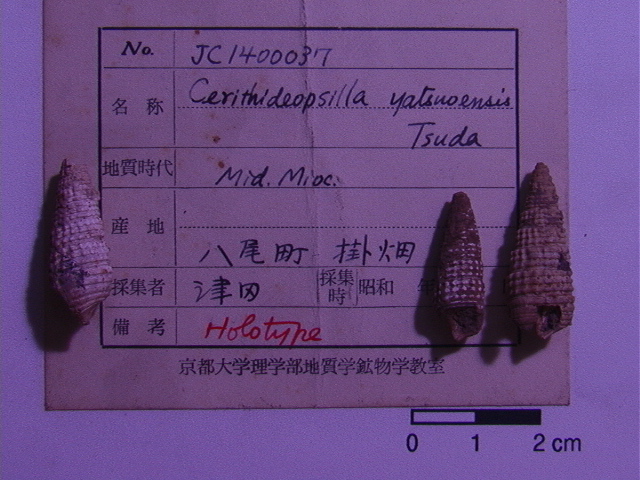 No. JC1400037
名称 Cerithideopsilla yatsuoensis
Tsuda
地質時代 Mid. Mioc.
産地
八尾町 掛畑
採集者 津田 採集時 昭和 年
備考 Holotype
京都大学理学部地質学鉱物学教室
0 1 2 cm